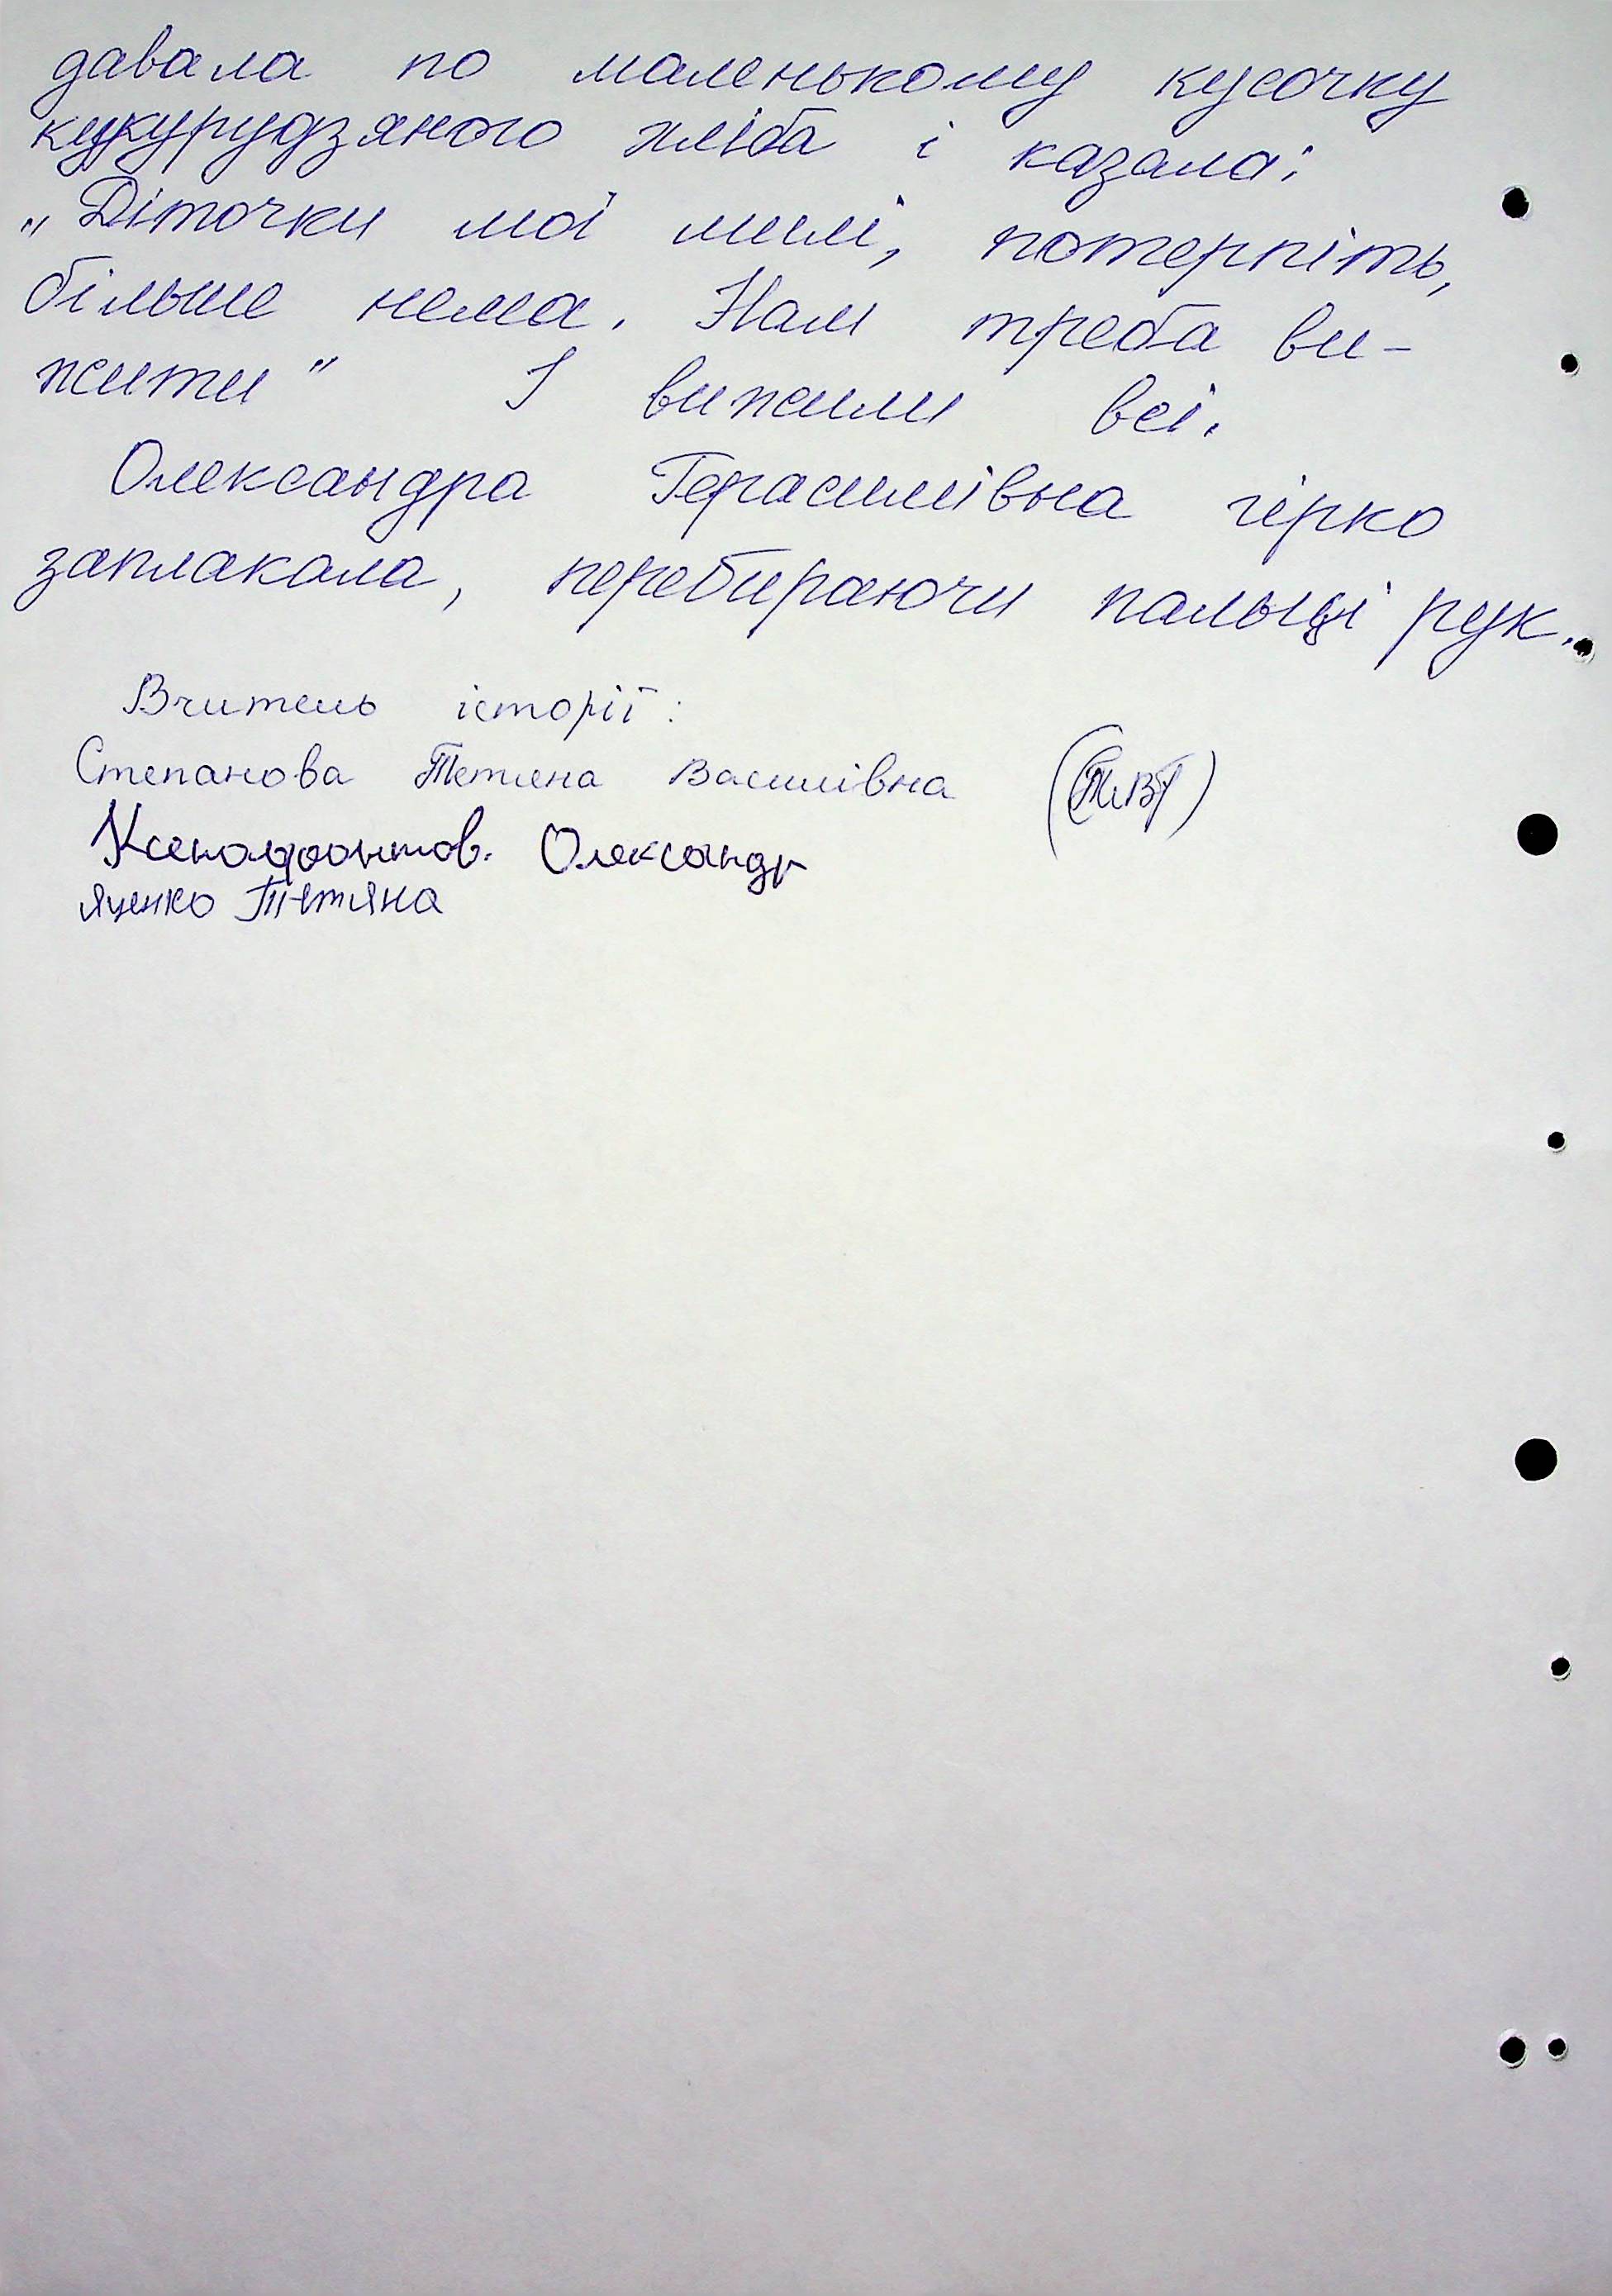 давала по маленькому кусочку
кукурудзяного хліба і казала:
„Діточки мої милі, потерпіть,
більше нема. Нам треба ви-
жити" І вижили всі.
Олександра Герасимівна гірко
заплакала, перебираючи пальці рук.
Вчитель історії:
Степанова Тетяна Василівна
Ксенофонтов. Олександр
Яценко Тетяна